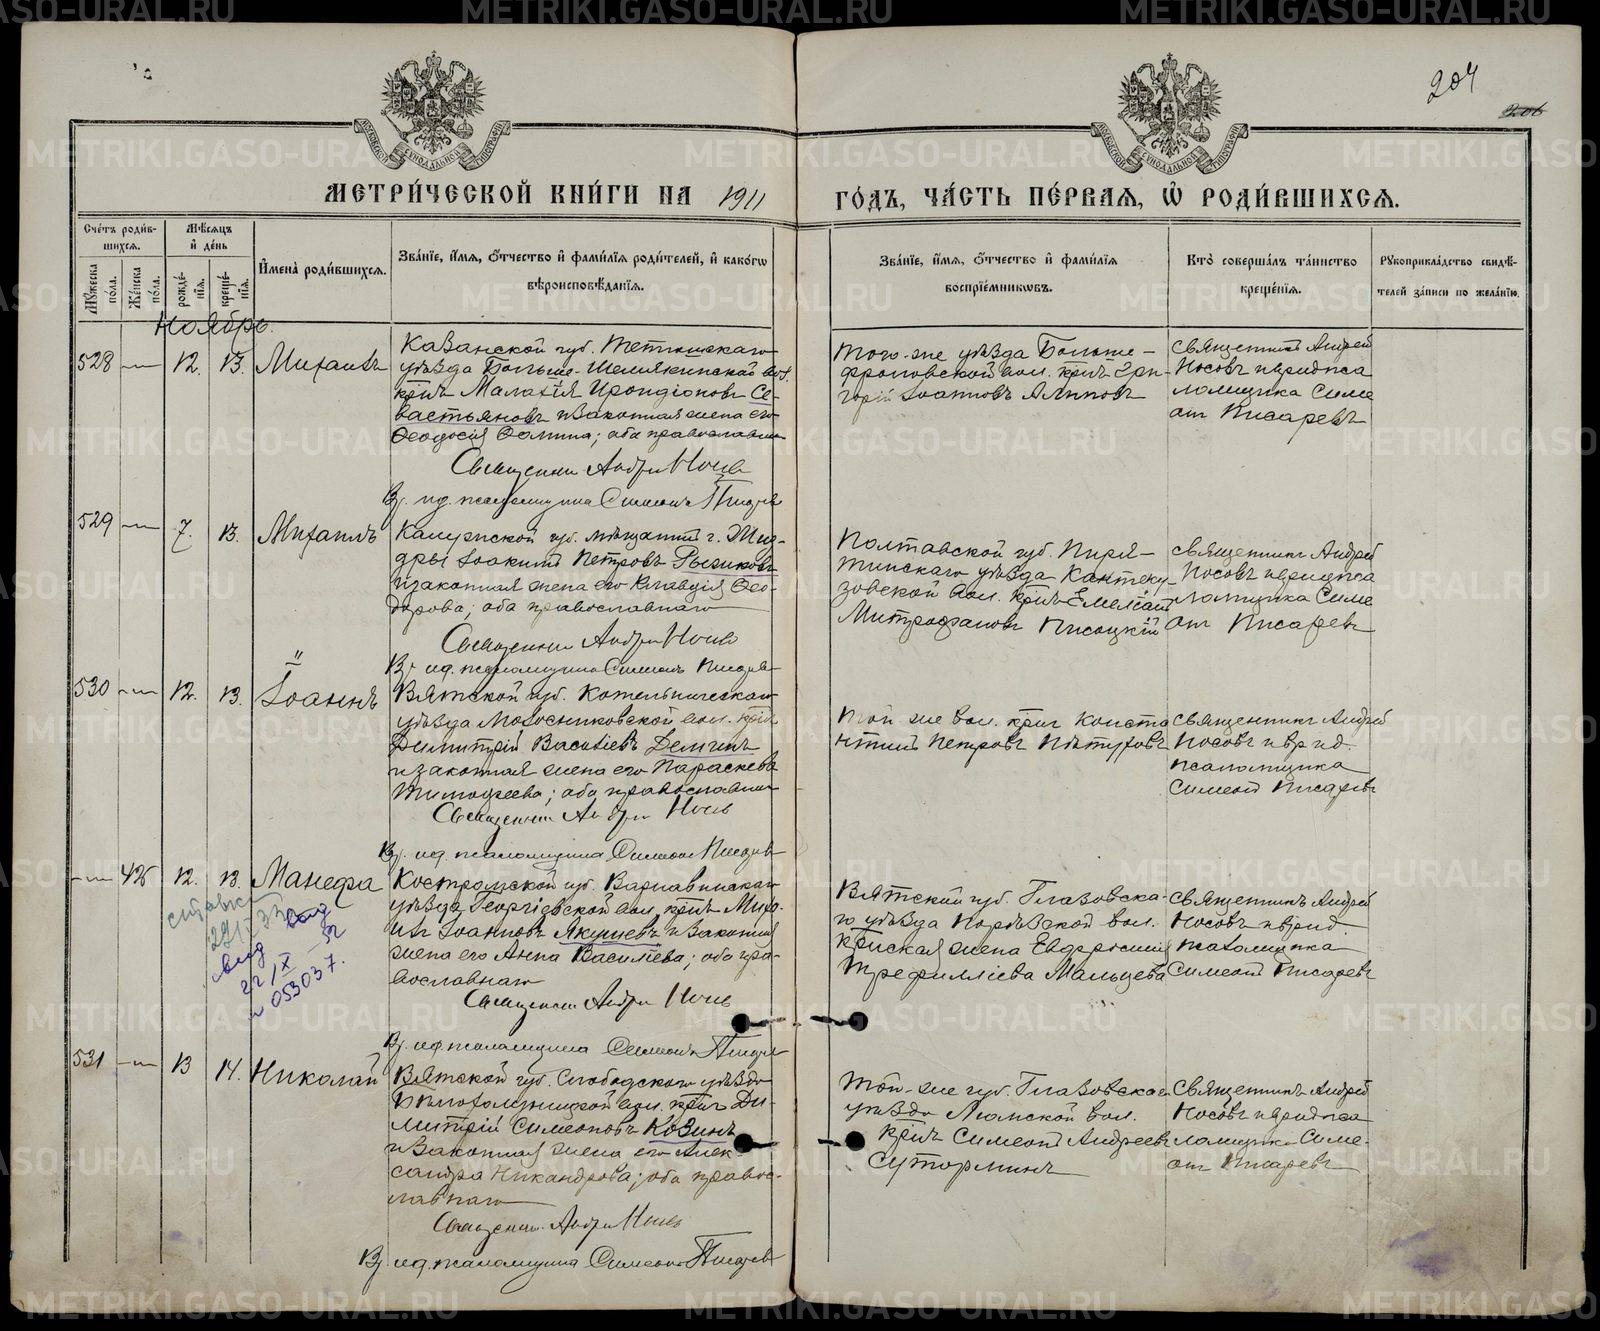 204
206
МОСКОВСКОЙ СѴНОДАЛЬНОЙ ТИПОГРАФІИ
МОСКОВСКОЙ СѴНОДАЛЬНОЙ ТИПОГРАФІИ
МЕТРИ́ЧЕСКОЙ КНИ́ГИ НА 1911 ГО́ДЪ, ЧА́СТЬ ПЕ́РВАЯ, Ѡ РОДИ́ВШИХСЯ.
Сче́тъ роди́в-
шихся.
Мѣ́сяцъ
и де́нь
Му́жеска по́ла.
Же́нска по́ла.
рожде́-
нїя.
креще́-
нїя.
И́мена̀ роди́вшихся.
Зва́нїе, и́мя, о́тчество и фами́лїя роди́телей, и како́гѡ
вѣроисповѣ́данїя.
Зва́нїе, и́мя, о́тчество и фами́лїя
воспрїе́мникѡвъ.
Кто̀ соверша́лъ та́инство
креще́нїя.
Рукоприкла́дство свидѣ́-
телей за́писи по жела́нїю.
Ноябрь.
528 — 12. 13. Михаилъ
Казанской губ. Тетюшскаго
уѣзда Больше-Шемякинской вол.
кр-нъ Малахія Иродіоновъ Се-
вастьяновъ и законная жена его
Ѳеодосія Ѳомина; оба православн
Священникъ Андрей Носовъ
Вр. ид. псаломщика Симеонъ Писарев
Того-же уѣзда Больше-
фроловской вол. кр-нъ Гри-
горій Іоанновъ Аляповъ
Священникъ Андрей
Носовъ и врид пса
ломщика Симе
онъ Писаревъ
529 — 7. 13. Михаилъ
Калужской губ. мѣщанинъ г. Жиз-
дры Іоакимъ Петровъ Рыжиковъ
и законная жена его Клавдія Ѳео-
дорова; оба православнаго
Священникъ Андрей Носов
Вр. ид. псаломщика Симеонъ Писарев
Полтавской губ. Пиря-
тинскаго уѣзда
зовской вол. кр-нъ Емеліанъ
Митрофановъ Писоцкій
Священникъ Андрей
Носовъ и врид пса
ломщика Симе
онъ Писаревъ
530 — 12. 13. Іоаннъ
Вятской губ. Котельническаго
уѣзда Молосниковской вол. кр-нъ
Димитрій Василіевъ Демчинъ
и законная жена его Параскева
Тимоѳеева; оба православн
Священникъ Андрей Носов
Вр. ид. псаломщика Симеонъ Писарев
Той-же вол. кр-нъ Конста
нтинъ Петровъ Пѣтуховъ
Священникъ Андрей
Носовъ и врид.
псаломщика
Симеонъ Писаревъ
— 425 12. 13. Манефа
Костромской губ. Варнавинскаго
уѣзда Георгіевской вол. кр-нъ Миха-
илъ Іоанновъ Якушевъ и законная
жена его Анна Василіева; оба пра-
вославнаго
Священникъ Андрей Носов
Вр. ид. псаломщика Симеонъ Писарев
Вятской губ. Глазовска-
го уѣзда Порѣзской вол.
кр-нская жена Евфросинія
Трефилліева Мальцева
Священникъ Андрей
Носовъ и врид.
псаломщика
Симеонъ Писаревъ
22/IX
053037.
531 — 13 14. Николай
Вятской губ. Слободского уѣзда
Бѣлохолуницкой вол. кр-нъ Ди-
митрій Симеоновъ Козинъ
и законная жена его Алек
сандра Никандрова; оба правос-
лавнаго
Священник. Андрей Носовъ
Вр. ид. псаломщика Симеонъ Писарев
Той-же губ. Глазовскаго
уѣзда Люмской вол.
кр-нъ Симеонъ Андреевъ
Суторминъ
Священникъ Андрей
Носовъ и врид пса
ломщика Симе-
онъ Писаревъ
METRIKI.GASO-URAL.RU